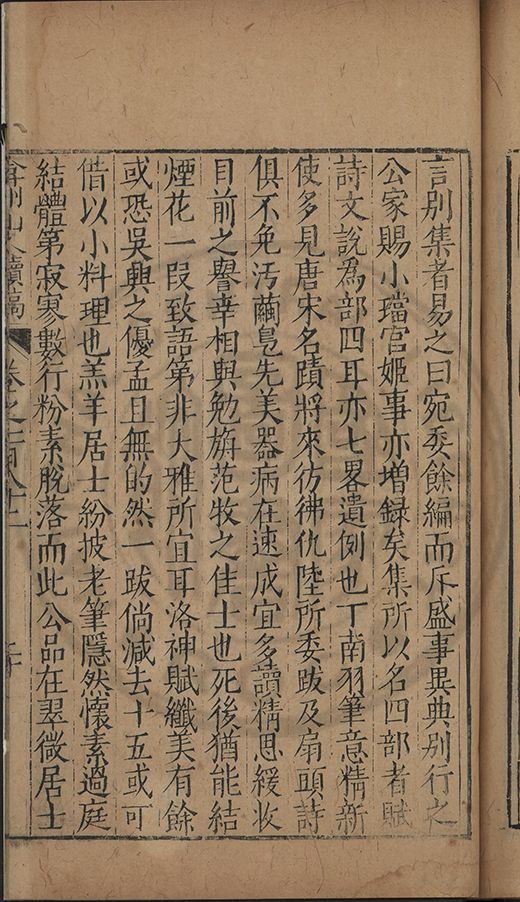 言別集者易之曰宛委餘編而斥盛事異典別行之
公家賜小璫官姬事亦增録矣集所以名四部者賦
詩文說為部四耳亦七畧遺例也丁南羽筆意精新
使多見唐宋名蹟將來彷彿仇陸所委跋及扇頭詩
俱不免汚繭皂先美器病在速成宜多讀精思緩收
目前之譽幸相與勉旃范牧之佳士也死後猶能結
煙花一段致語第非大雅所宜耳洛神賦纖美有餘
或恐吳興之優孟且無的然一跋倘減去十五或可
借以小料理也羔羊居士紛披老筆隱然懷素過庭
結體第寂寥數行粉素脫落而此公品在翠微居士
弇州山人續稿
卷之一百八十二
二十